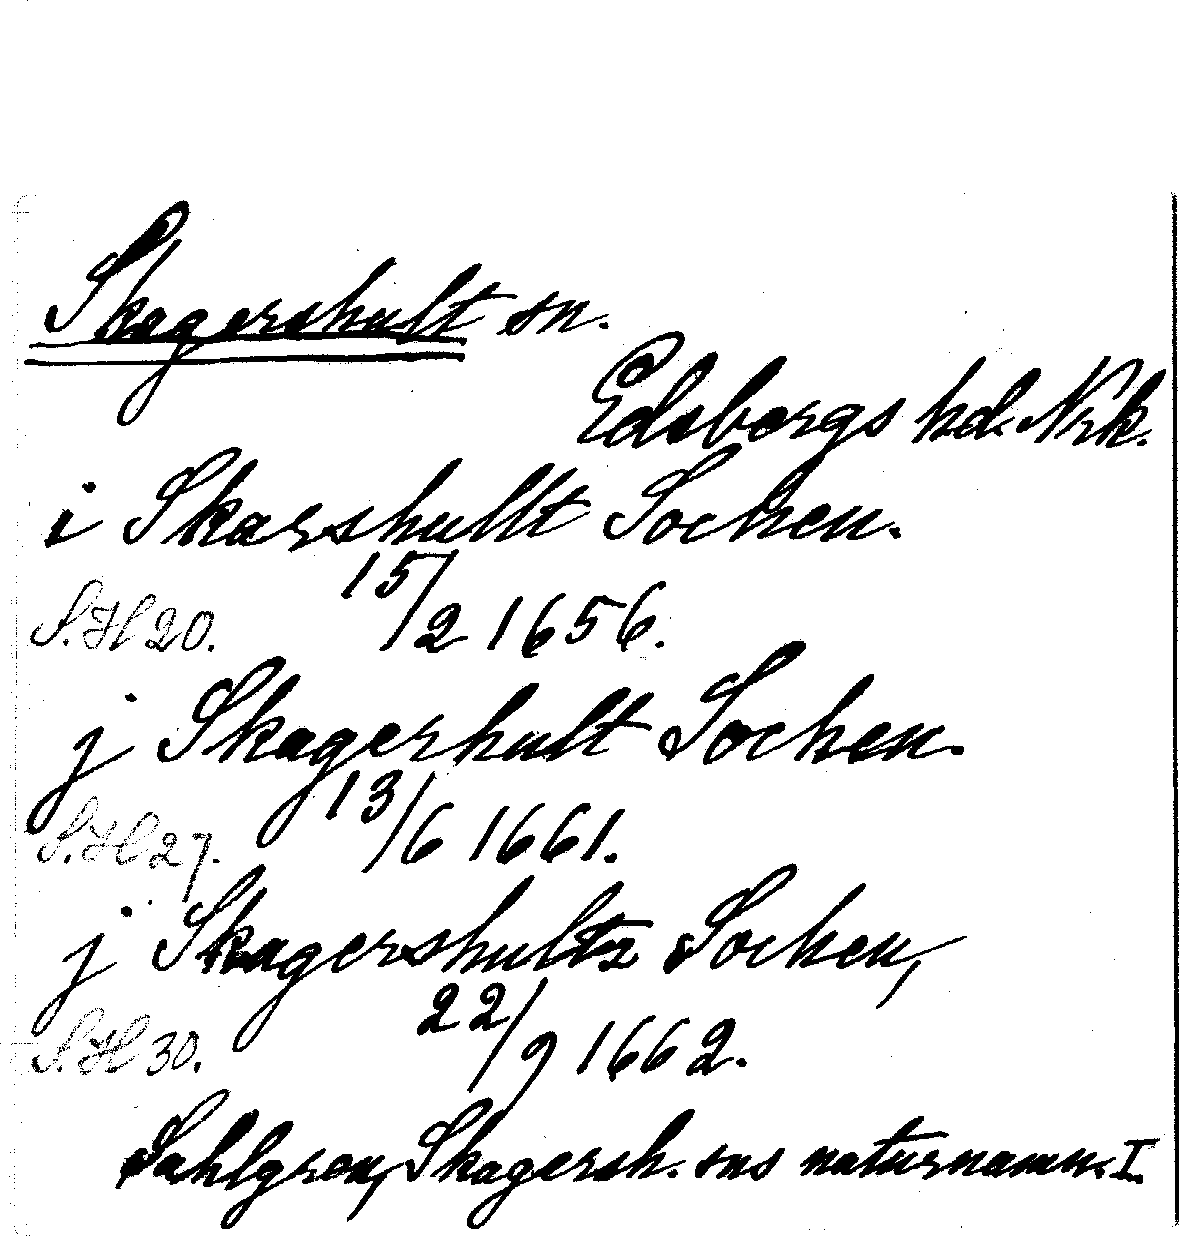 Skagershult sn.
Edsbergs hd. Nrk.
i Skarshullt Sochen.
S.H 20. 15/2 1656.
j Skagerhult Sochen.
S.H 27. 13/6 1661.
j Skagershultz Sochen,
S.H 30. 22/9 1662.
Sahlgren, Skagersh. sns naturnamn. I.